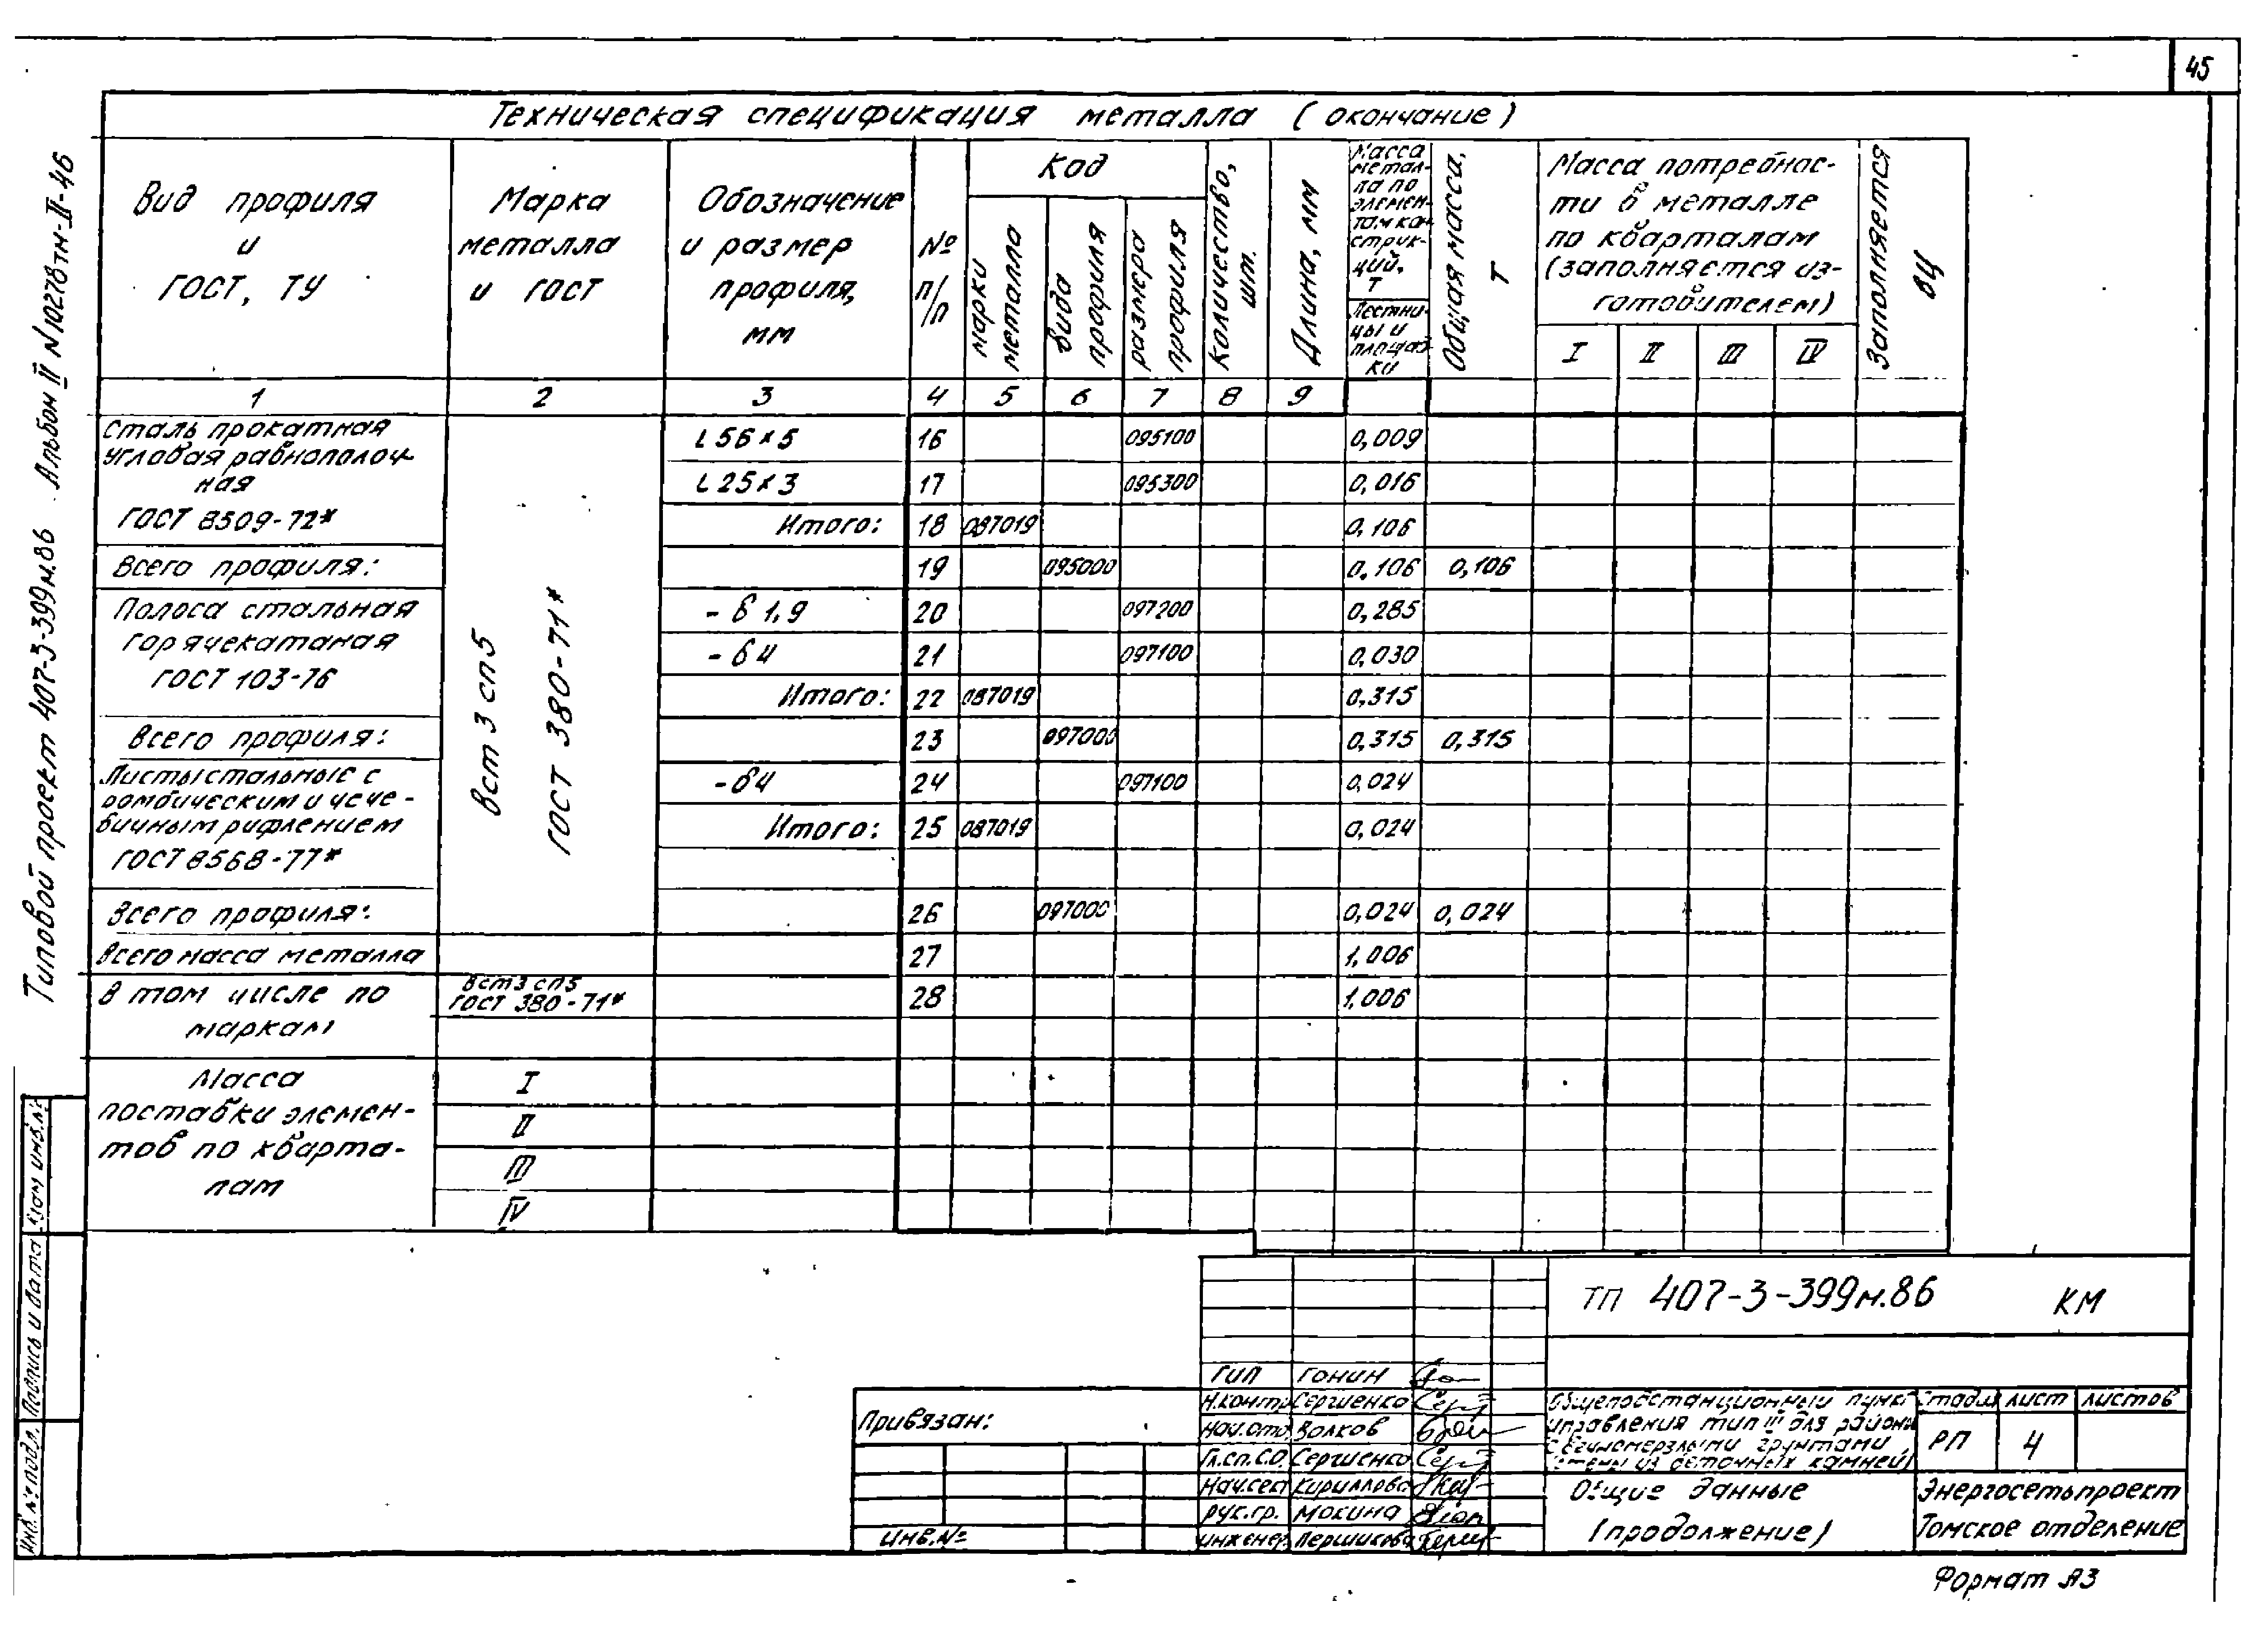 45
Техническая спецификация металла (окончание)
Вид профиля
и
ГОСТ, ТУ
Марка
металла
и ГОСТ
Обозначение
и размер
профиля,
мм
№
п/п
Код
марки металла
вида профиля
размера профиля
Количество, шт.
Длина, мм
Масса
метал-
ла по
элемен-
там кон
струк-
ций,
т
Лестни-
цы и
площад
ки
Общая масса, т
Масса потребнос-
ти в металле
по кварталам
(заполняется из-
готовителем)
I II III IV
Заполняется ВЦ
1 2 3 4 5 6 7 8 9
Сталь прокатная
угловая равнополоч-
ная
ГОСТ 8509-72*
Вст 3 сп5
ГОСТ 380-71*
L 56×5 16 095100 0,009
L 25×3 17 095300 0,016
Итого: 18 087019 0,106
Всего профиля: 19 095000 0,106 0,106
Полоса стальная
горячекатаная
ГОСТ 103-76
- δ 1,9 20 097200 0,285
- δ4 21 097100 0,030
Итого: 22 087019 0,315
Всего профиля: 23 097000 0,315 0,315
Листы стальные с
ромбическим и чече-
вичным рифлением
ГОСТ 8568-77*
- δ4 24 097100 0,024
Итого: 25 087019 0,024
Всего профиля: 26 097000 0,024 0,024
Всего масса металла 27 1,006
В том числе по
маркам
Вст3 сп5
ГОСТ 380-71*
28 1,006
Масса
поставки элемен-
тов по кварта-
лам
I
II
III
IV
Типовой проект 407-3-399м.86 Альбом II N10278тм-II-46
Взам инв.№
Подпись и дата
Инв.№ подл.
ТП 407-3-399м.86 КМ
Привязан:
Инв.№
ГИП Гонин
Н.контр Сергиенко
Нач.отд. Волков
Гл.сп.С.О. Сергиенко
Нач.сек Кириллова
Рук.гр. Мокина
Инженер Першикова
Общеподстанционный пункт
управления тип III для района
с вечномерзлыми грунтами
(стены из бетонных камней)
Стадия Лист Листов
РП 4
Общие данные
(продолжение)
Энергосетьпроект
Томское отделение
Формат А3